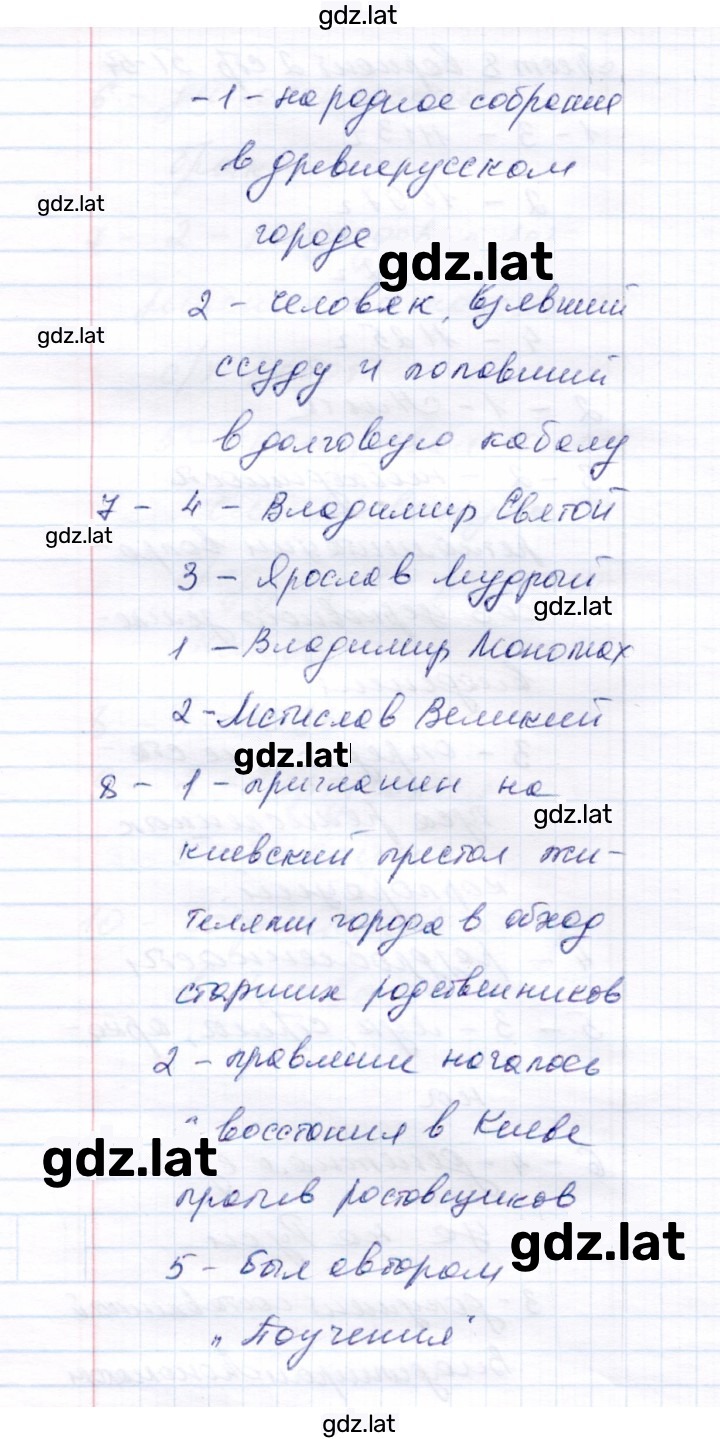 gdz.lat
- 1 - народное собрание
в древнерусском
gdz.lat
городе
gdz.lat
2 - человек, взявший
gdz.lat
ссуду и попавший
в долговую кабалу
7 - 4 - Владимир Святой
gdz.lat
3 - Ярослав Мудрый
gdz.lat
1 - Владимир Мономах
2 - Мстислав Великий
gdz.lat
8 - 1 - приглашен на
gdz.lat
киевский престол жи-
телями города в обход
старших родственников
2 - правление началось
восстания в Киеве
gdz.lat
против ростовщиков
gdz.lat
5 - был автором
„Поучения"
gdz.lat